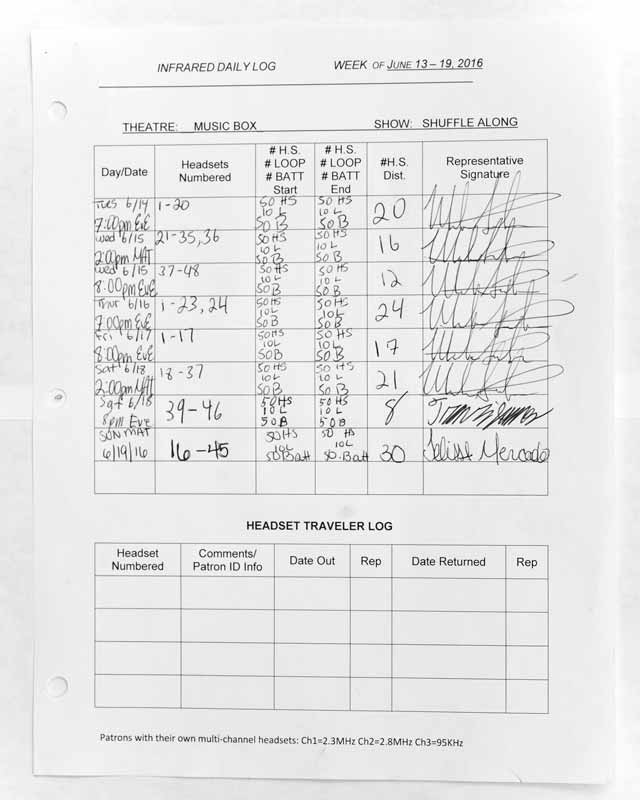 INFRARED DAILY LOG WEEK OF JUNE 13 – 19, 2016
THEATRE: MUSIC BOX SHOW: SHUFFLE ALONG
Day/Date Headsets Numbered # H.S. # LOOP # BATT Start # H.S. # LOOP # BATT End #H.S. Dist. Representative Signature
Tues 6/14 7:00pm EvE 1-20 50 HS 10 L 50 B 50 HS 10 L 50 B 20
Wed 6/15 2:00pm MAT 21-35, 36 50 HS 10 L 50 B 50 HS 10 L 50 B 16
Wed 6/15 8:00pm EvE 37-48 50 HS 10 L 50 B 50 HS 10 L 50 B 12
Thur 6/16 7:00pm EvE 1-23, 24 50 HS 10 L 50 B 50 HS 10 L 50 B 24
Fri 6/17 8:00pm EvE 1-17 50 HS 10 L 50 B 50 HS 10 L 50 B 17
Sat 6/18 2:00pm MAT 18-37 50 HS 10 L 50 B 50 HS 10 L 50 B 21
Sat 6/18 8pm Eve 39-46 50 HS 10 L 50 B 50 HS 10 L 50 B 8
SUN MAT 6/19/16 16-45 50 HS 10L 50 Batt 50 HS 10L 50. Batt 30 Mercado
HEADSET TRAVELER LOG
Headset Numbered Comments/ Patron ID Info Date Out Rep Date Returned Rep
Patrons with their own multi-channel headsets: Ch1=2.3MHz Ch2=2.8MHz Ch3=95KHz